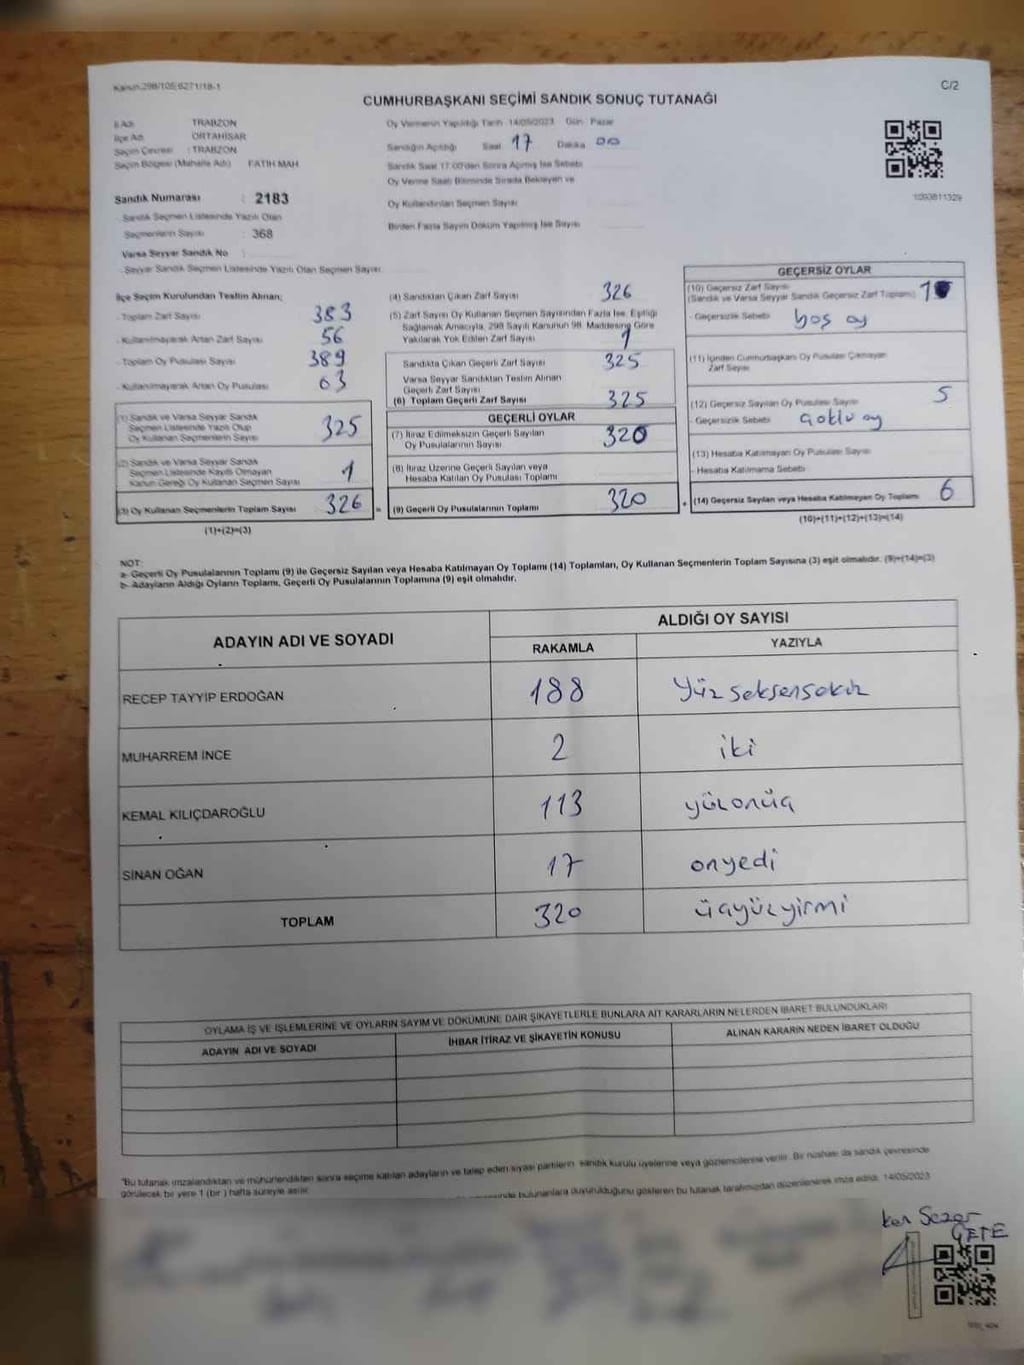 Kanun:298/105;6271/18-1
C/2
CUMHURBAŞKANI SEÇİMİ SANDIK SONUÇ TUTANAĞI
İl Adı TRABZON
İlçe Adı ORTAHİSAR
Seçim Çevresi : TRABZON
Seçim Bölgesi (Mahalle Adı) FATİH MAH
Sandık Numarası : 2183
- Sandık Seçmen Listesinde Yazılı Olan
Seçmenlerin Sayısı : 368
Varsa Seyyar Sandık No :
- Seyyar Sandık Seçmen Listesinde Yazılı Olan Seçmen Sayısı
Oy Vermenin Yapıldığı Tarih 14/05/2023 Gün Pazar
Sandığın Açıldığı Saat 17 Dakika 00
Sandık Saat 17:00'den Sonra Açılmış İse Sebebi
Oy Verme Saati Bitiminde Sırada Bekleyen ve
Oy Kullandırılan Seçmen Sayısı
Birden Fazla Sayım Döküm Yapılmış İse Sayısı
1093811329
İlçe Seçim Kurulundan Teslim Alınan;
- Toplam Zarf Sayısı 383
- Kullanılmayarak Artan Zarf Sayısı 56
- Toplam Oy Pusulası Sayısı 389
- Kullanılmayarak Artan Oy Pusulası 63
(1) Sandık ve Varsa Seyyar Sandık
Seçmen Listesinde Yazılı Olup
Oy Kullanan Seçmenlerin Sayısı 325
(2) Sandık ve Varsa Seyyar Sandık
Seçmen Listesinde Kayıtlı Olmayan
Kanun Gereği Oy Kullanan Seçmen Sayısı 1
(3) Oy Kullanan Seçmenlerin Toplam Sayısı 326 =
(1)+(2)=(3)
(4) Sandıktan Çıkan Zarf Sayısı 326
(5) Zarf Sayısı Oy Kullanan Seçmen Sayısından Fazla İse, Eşitliği
Sağlamak Amacıyla, 298 Sayılı Kanunun 98. Maddesine Göre
Yakılarak Yok Edilen Zarf Sayısı 1
Sandıkta Çıkan Geçerli Zarf Sayısı 325
Varsa Seyyar Sandıktan Teslim Alınan
Geçerli Zarf Sayısı
(6) Toplam Geçerli Zarf Sayısı 325
GEÇERLİ OYLAR
(7) İtiraz Edilmeksizin Geçerli Sayılan
Oy Pusulalarının Sayısı 320
(8) İtiraz Üzerine Geçerli Sayılan veya
Hesaba Katılan Oy Pusulası Toplamı
(9) Geçerli Oy Pusulalarının Toplamı 320 +
GEÇERSİZ OYLAR
(10) Geçersiz Zarf Sayısı
(Sandık ve Varsa Seyyar Sandık Geçersiz Zarf Toplamı) 1
- Geçersizlik Sebebi boş oy
(11) İçinden Cumhurbaşkanı Oy Pusulası Çıkmayan
Zarf Sayısı
(12) Geçersiz Sayılan Oy Pusulası Sayısı 5
- Geçersizlik Sebebi Çoklu oy
(13) Hesaba Katılmayan Oy Pusulası Sayısı
- Hesaba Katılmama Sebebi
(14) Geçersiz Sayılan veya Hesaba Katılmayan Oy Toplamı 6
(10)+(11)+(12)+(13)=(14)
NOT:
a- Geçerli Oy Pusulalarının Toplamı (9) ile Geçersiz Sayılan veya Hesaba Katılmayan Oy Toplamı (14) Toplamları, Oy Kullanan Seçmenlerin Toplam Sayısına (3) eşit olmalıdır. (9)+(14)=(3)
b- Adayların Aldığı Oyların Toplamı, Geçerli Oy Pusulalarının Toplamına (9) eşit olmalıdır.
ADAYIN ADI VE SOYADI
ALDIĞI OY SAYISI
RAKAMLA YAZIYLA
RECEP TAYYİP ERDOĞAN 188 Yüz seksensekiz
MUHARREM İNCE 2 iki
KEMAL KILIÇDAROĞLU 113 yüzonüç
SİNAN OĞAN 17 onyedi
TOPLAM 320 üçyüzyirmi
OYLAMA İŞ VE İŞLEMLERİNE VE OYLARIN SAYIM VE DÖKÜMÜNE DAİR ŞİKAYETLERLE BUNLARA AİT KARARLARIN NELERDEN İBARET BULUNDUKLARI
ADAYIN ADI VE SOYADI İHBAR İTİRAZ VE ŞİKAYETİN KONUSU ALINAN KARARIN NEDEN İBARET OLDUĞU
"Bu tutanak imzalandıktan ve mühürlendikten sonra seçime katılan adayların ve talep eden siyasi partilerin sandık kurulu üyelerine veya gözlemcilerine verilir. Bir nüshası da sandık çevresinde
görülecek bir yere 1 (bir ) hafta süreyle asılır.
bulunanlara duyurulduğunu gösteren bu tutanak tarafımızdan düzenlenerek imza edildi. 14/05/2023
Sezer
ÇETE